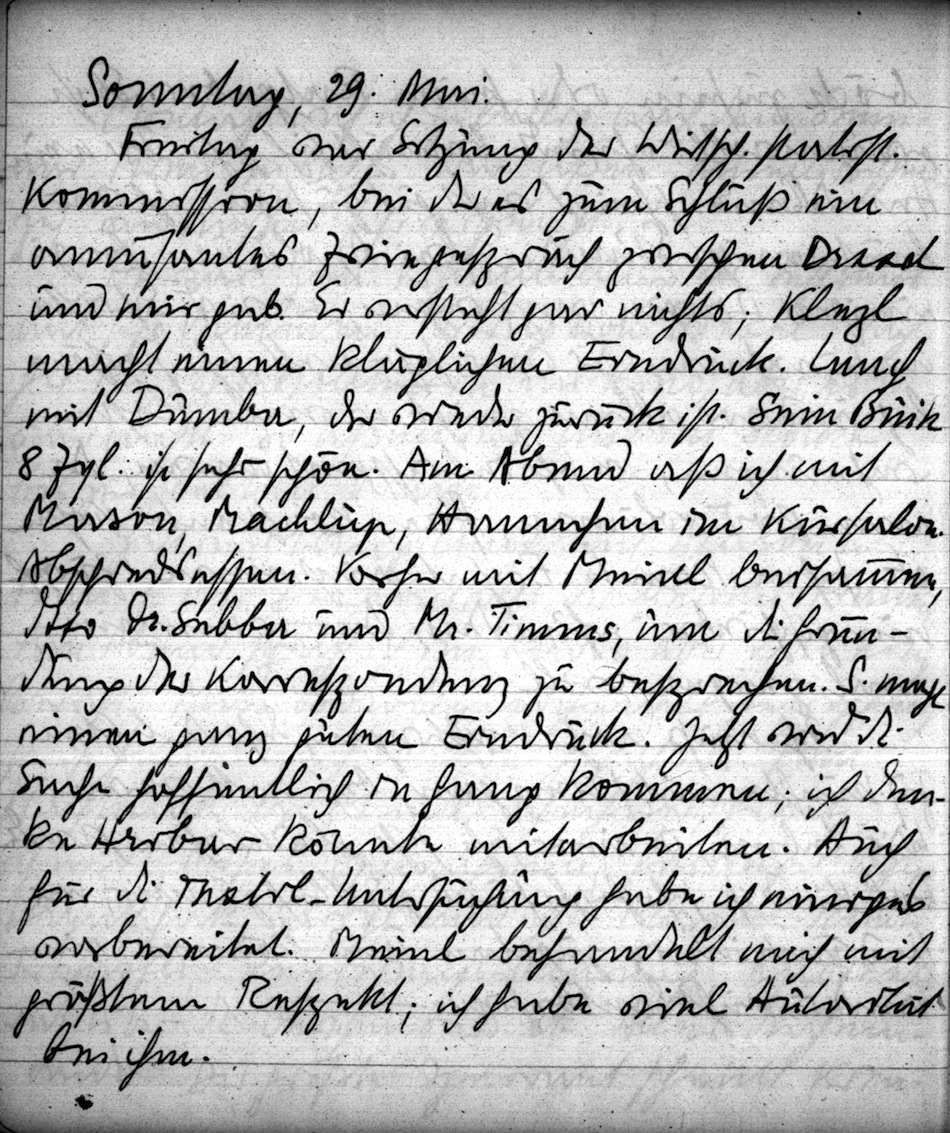 Sonntag, 29. Mai.
Freitag war Sitzung der Wirtsch. statist.
Kommission, bei der es zum Schluß ein
amüsantes Zwiegespräch zwischen Drexel
und mir gab. Er versteht gar nichts; Klezl
macht einen kläglichen Eindruck. Lunch
mit Dumba, der wieder zurück ist. Sein Buik
8 Zyl. ist sehr schön. Am Abend aß ich mit
Mason, Machlup, Hannchen im Kursalon.
Abschiedsessen. Vorher mit Meinl beisammen,
dto Dr. Sebba und Mr. Timms, um die Grün-
dung der Korrespondenz zu besprechen. S. macht
einen ganz guten Eindruck. Jetzt wird die
Sache hoffentlich in Gang kommen; ich den-
ke Herbar könnte mitarbeiten. Auch
für die Untersuchung habe ich einiges
vorbereitet. Meinl behandelt mich mit
größtem Respekt; ich habe viel Autorität
bei ihm.